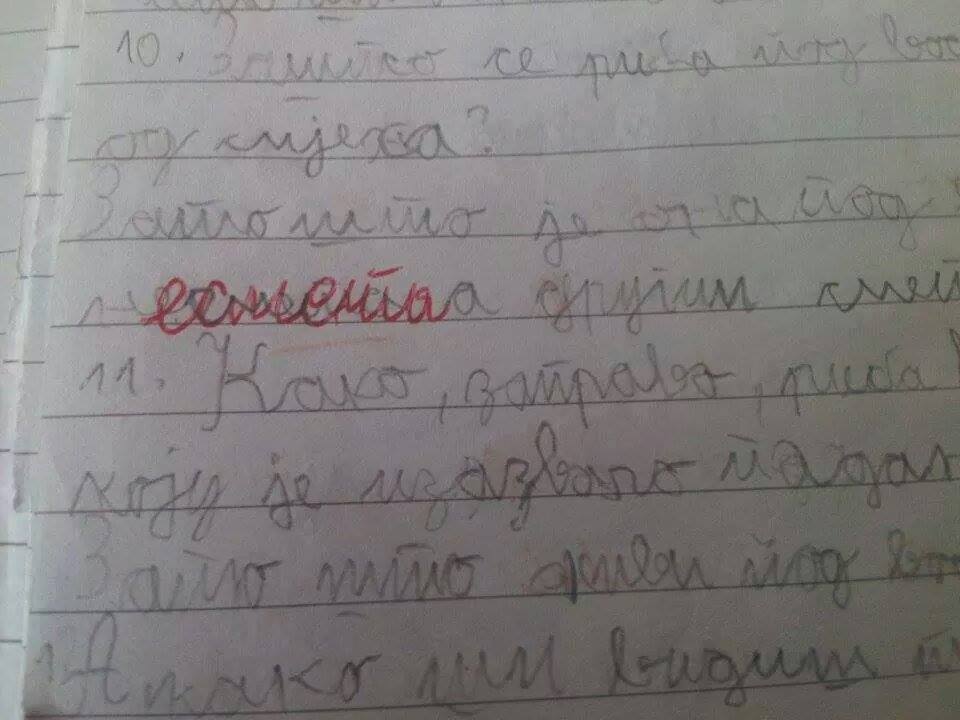 10. Зашто се риба под вод
од смјеха?
Зато што је она под
есмета другим
11. Како, заправо, риба
коју је изазвало пада
Зато што живи под во
А како ши видиш